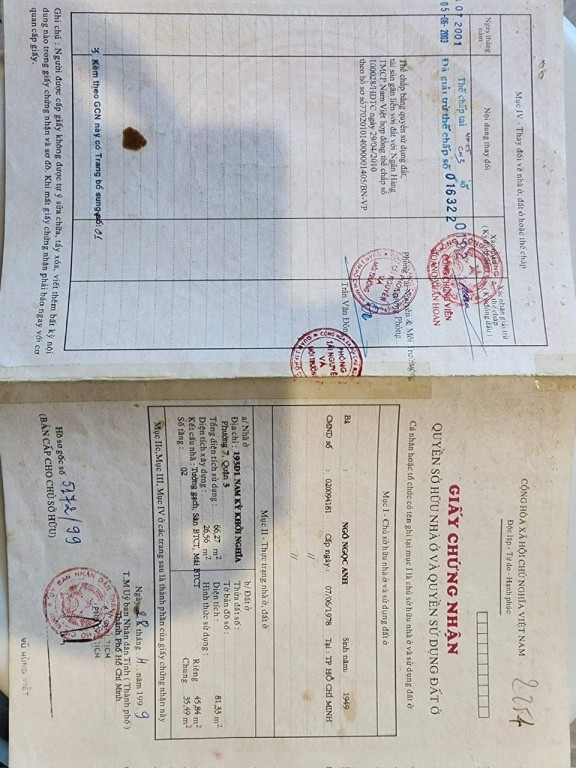 CỘNG HÒA XÃ HỘI CHỦ NGHĨA VIỆT NAM
Độc lập - Tự do - Hạnh phúc
2254
GIẤY CHỨNG NHẬN
QUYỀN SỞ HỮU NHÀ Ở VÀ QUYỀN SỬ DỤNG ĐẤT Ở
Cá nhân hoặc tổ chức có tên ghi tại mục I là chủ sở hữu nhà ở và sử dụng đất ở
Mục I - Chủ sở hữu nhà ở và sử dụng đất ở
Bà : NGÔ NGỌC ANH Sinh năm: 1949
CMND số : 020094181 Cấp ngày : 07/06/1978 Tại : TP HỒ CHÍ MINH
// //
Mục II - Thực trạng nhà ở, đất ở
a/ Nhà ở
Địa chỉ : 193D1 NAM KỲ KHỞI NGHĨA
Phường 7, Quận 3
Tổng diện tích sử dụng : 66,27 m²
Diện tích xây dựng : 26,56 m²
Kết cấu nhà : Tường gạch, Sàn BTCT, Mái BTCT
Số tầng : 02
b/ Đất ở
Thửa đất số :
Tờ bản đồ số :
Diện tích : 81,33 m²
Hình thức sử dụng : Riêng 45,84 m²
Chung 35,49 m²
Mục IIc, Mục III, Mục IV ở các trang sau là thành phần của giấy chứng nhận này
Ngày 28 tháng 4 năm 1999
T.M Uỷ ban Nhân dân Tỉnh ( Thành phố )
Thành Phố Hồ Chí Minh
Hồ sơ gốc số 5172/99
(BẢN CẤP CHO CHỦ SỞ HỮU)
VŨ HÙNG VIỆT
Mục IV - Thay đổi về nhà ở, đất ở hoặc thế chấp
Ngày tháng năm
Nội dung thay đổi
07 2001
05-06-2003
Thế chấp tại
số
Đã giải trừ thế chấp số 016322
CÔNG CHỨNG VIÊN
Thế chấp bằng quyền sử dụng đất,
tài sản gắn liền với đất với Ngân Hàng
TMCP Nam Việt hợp đồng thế chấp số
100028/HĐTC ngày 29/04/2010
theo hồ sơ số
Phòng Tài Nguyên & Môi Trường
Trần Văn Đông
PHÒNG
TÀI NGUYÊN
VÀ
MÔI TRƯỜNG
Kèm theo GCN này có Trang bổ sung số: 01
Ghi chú : Người được cấp giấy không được tự ý sửa chữa, tẩy xóa, viết thêm bất kỳ nội
dung nào trong giấy chứng nhận và sơ đồ. Khi mất giấy chứng nhận phải báo ngay với cơ
quan cấp giấy.